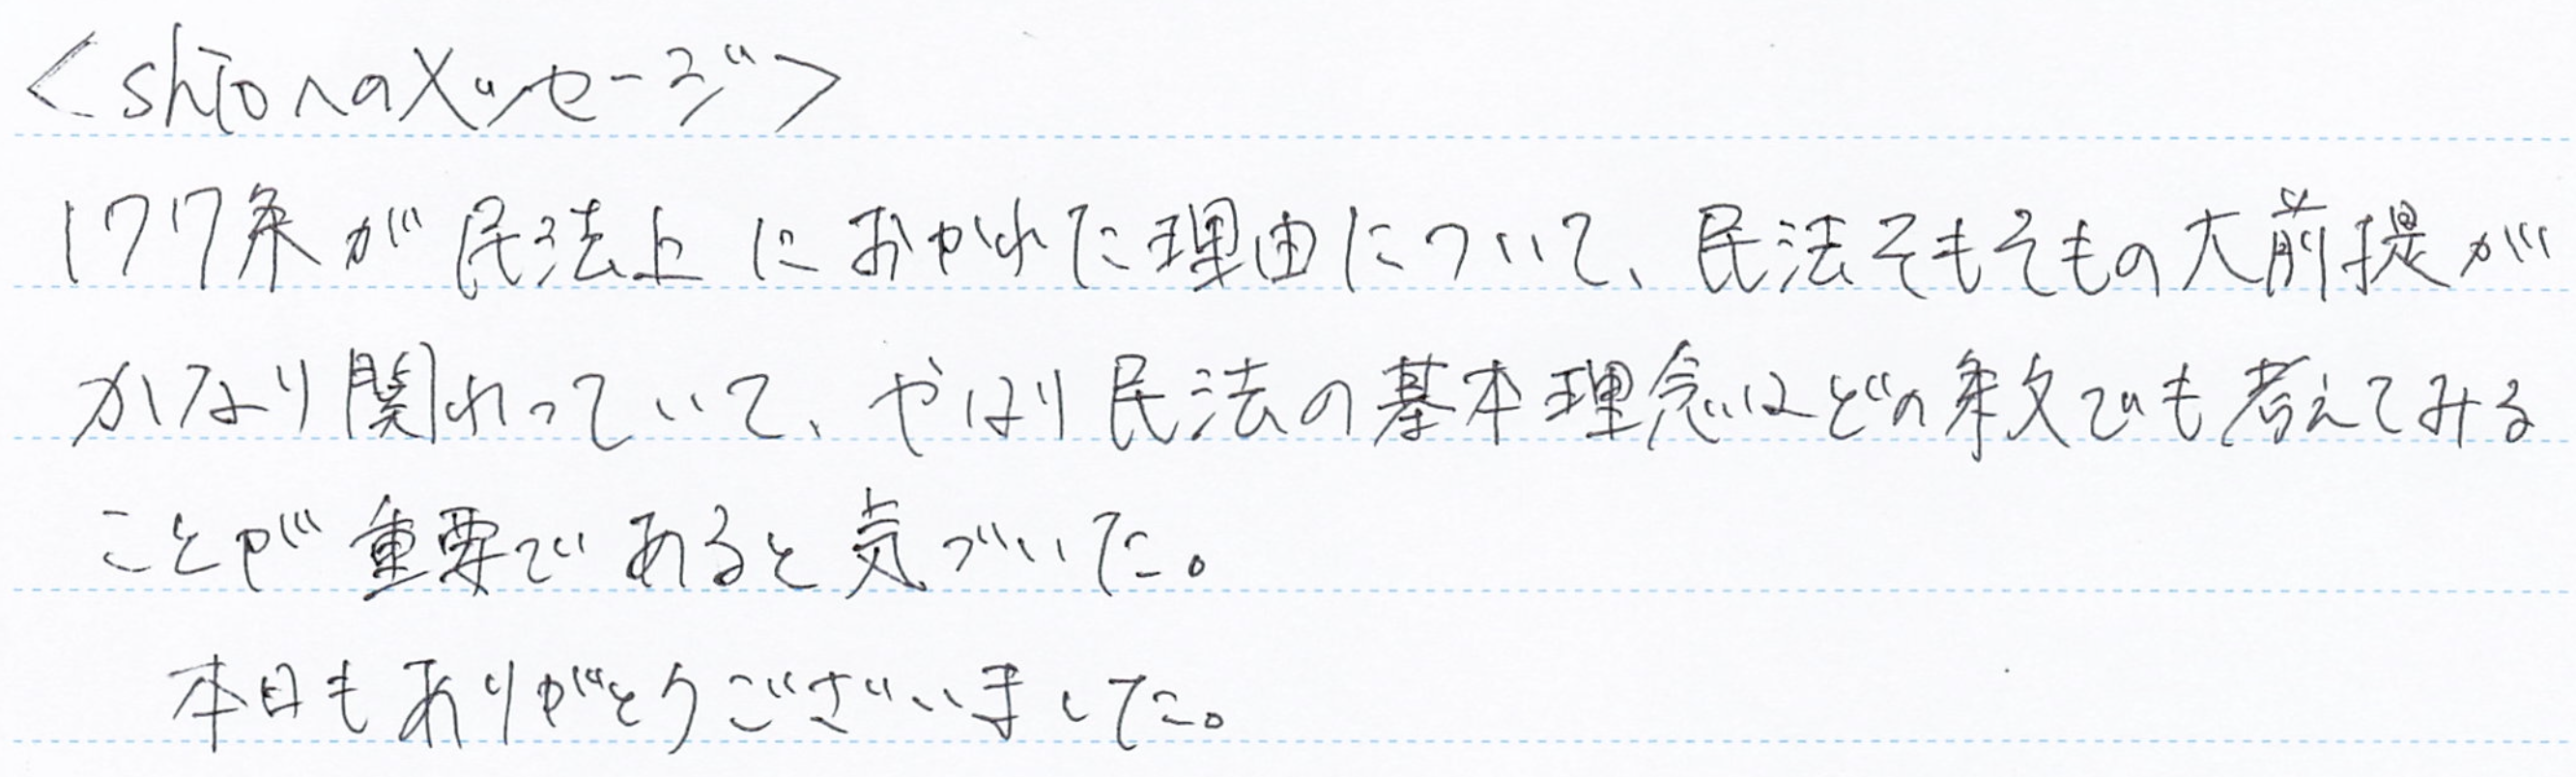 <shioへのメッセージ>
177条が民法上におかれた理由について、民法そもそもの大前提が
かなり関わっていて、やはり民法の基本理念はどの条文でも考えてみる
ことが重要であると気づいた。
本日もありがとうございました。